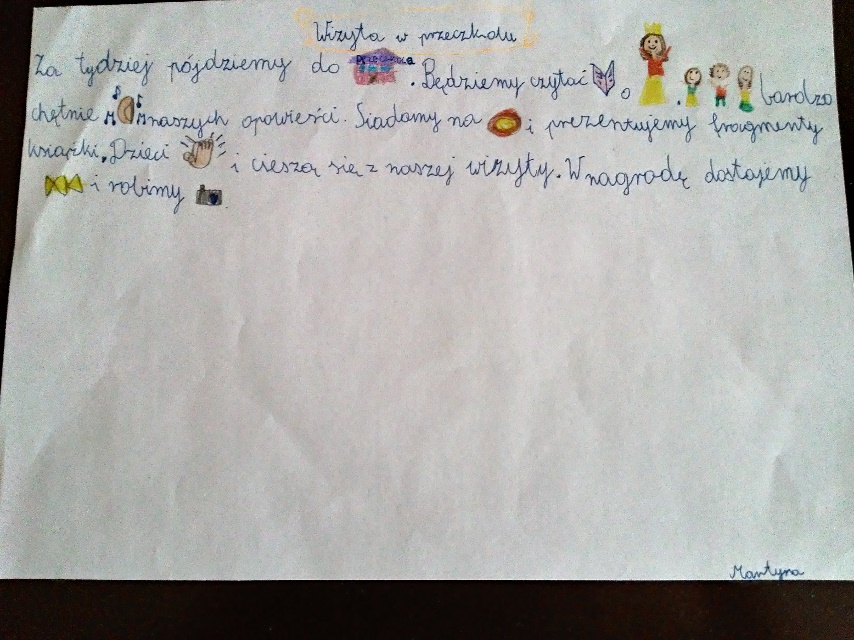 Wizyta w przeczkolu
Za tydziej pójdziemy do przeczkola. Będziemy czytać o . bardzo
chętnie naszych opowieści. Siadamy na i prezentujemy fragmenty
książki. Dzieci i cieszą się z naszej wizyty. W nagrodę dostajemy
i robimy .
Martyna